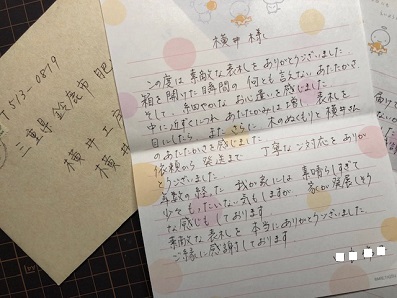 〒513-0819
三重県鈴鹿市肥
横井工房
横井
横井様
この度は素敵な表札をありがとうございました。
箱を開けた瞬間の何とも言えないあたたかさ、
そして、細やかなお心遣いを感じました。
中に近づくにつれ、あたたかみは増し、表札を
目にしたら、また、さらに木のぬくもりと横井さん
のあたたかさを感じました。
依頼から発送まで丁寧なご対応をありが
とうございました。
年数の経った我が家には素晴らしすぎて
少々もったいない気もしますが、家が発展しそう
な感じもしております。
素敵な表札を本当にありがとうございました。
ご縁に感謝しております。